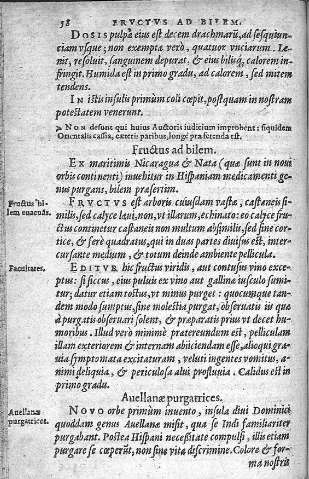 58 FRVCTVS AD BILEM.
DOSIS pulpæ eius est decem drachmarũ, ad sesquiun-
ciam vsque; non exemptæ verò, quatuor vnciarum. Le-
nit, resoluit, sanguinem depurat, & eius biliq́;, calorem in-
fringit. Humida est in primo gradu, ad calorem, sed mitem
tendens.
In istis insulis primùm coli cœpit, postquam in nostram
potestatem venerunt.
NON desunt qui huius Auctoris iudicium improbent; siquidem
Orientalis cassia, cæteris paribus, longè præferenda est.
Fructus ad bilem.
EX maritimis Nicaragua & Nata (quæ sunt in noui
orbis continenti) inuehitur in Hispaniam medicamenti ge-
nus purgans, bilim præsertim.
Fructus bi-
lem euacuãs.
FRVCTVS est arboris cuiusdam vastæ, castaneis si-
milis, sed calyce leui, non, vt illarum, echinato: eo calyce fru-
ctus continetur castaneis non multum absimilis, sed sine cor-
tice, & ferè quadratus, qui in duas partes diuisus est, inter-
cursante medium, & totum deinde ambiente pellicula.
Facultates.
EDITVR hic fructus viridis, aut contusus vino exce-
ptus: si siccus, eius puluis ex vino aut gallinæ iusculo sumi-
tur; datur etiam tostus, vt minus purget: quocumque tan-
dem modo sumptus, sine molestia purgat, obseruatis iis quæ
à purgatis obseruari solent, & præparatis prius vt decet hu-
moribus. Illud verò minimè prætereundum est, pelliculam
illam exteriorem & internam abiiciendam esse, alioqui gra-
uia symptomata excitaturam, veluti ingentes vomitus, a-
nimi deliquia, & periculosa alui profluuia. Calidus est in
primo gradu.
Auellanæ purgatrices.
Auellanæ
purgatrices.
NOVO orbe primùm inuento, insula diui Dominici
quoddam genus Auellanæ misit, qua se Indi familiariter
purgabant. Postea Hispani necessitate compulsi, illis etiam
purgare se cœperũt, non sine vitæ discrimine. Colore & for-
ma nostra